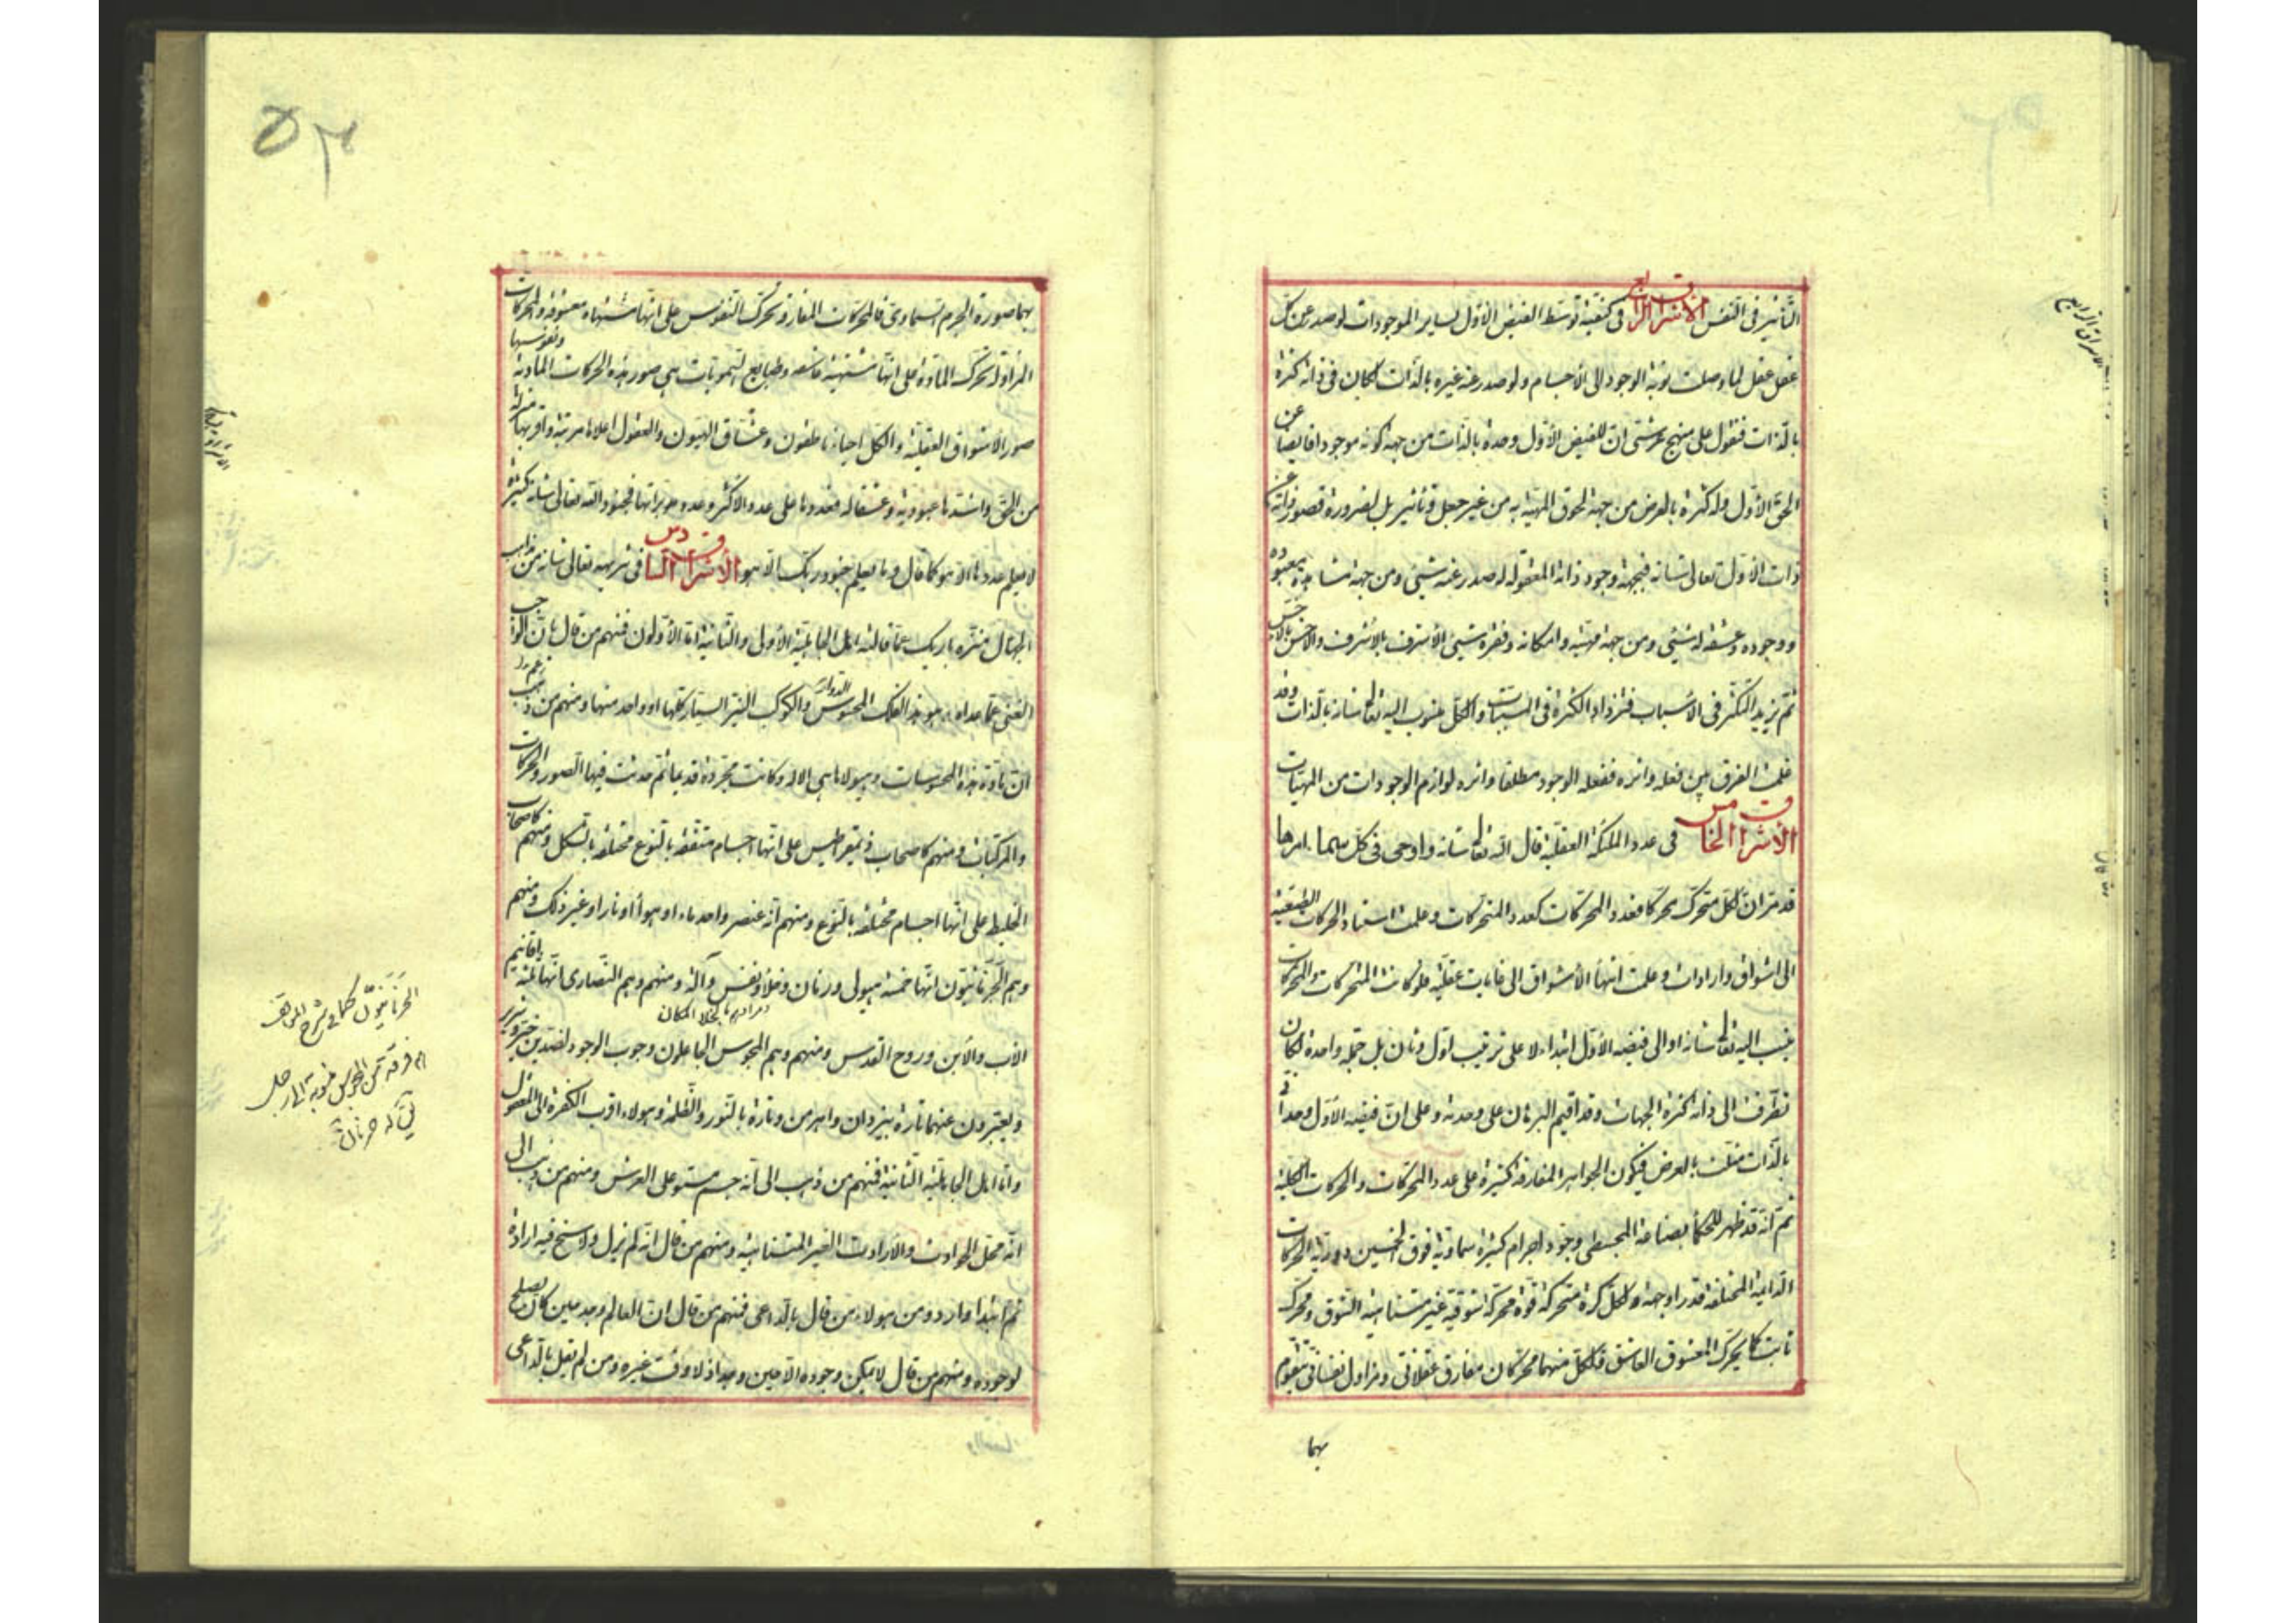 التأثير في النفس الاشراق الرابع في كيفية توسط الفيض الأول لساير الموجودات لو صدر عن كل
عقل عقل لما وصلت نوبة الوجود الى الأجسام ولو صدر عنه غيره بالذات لكان في ذاته كثرة
بالذات فنقول على منهج عرشي ان للفيض الأول وحدة بالذات من جهة كونه موجودا فايضا عن
الحق الأول وله كثرة بالعرض من جهة لحوق المهية به من غير جعل وتأثير بل لضرورة قصور ذاته عن
ذات الأول تعالى شانه فبجهة وجود ذاته المعقولة له صدر عنه شيئ ومن جهة مشاهدة معبوده
ووجوده وعشقه له شيئ ومن جهة مهيته وامكانه وفقره شيئ الأشرف بالأشرف والاخس بالاخس
ثم يزيد التكثر في الأسباب فتزداد الكثرة في المسببات والكل منسوب اليه تعالى شانه بالذات وقد
علمت الفرق بين فعله واثره ففعله الوجود مطلقا واثره لوازم الوجودات من المهيات
الأشراق الخامس في عدد الملئكة العقلية قال الله تعالى شانه واوحى في كل سماء امرها
قد مر ان لكل متحرك محركا فعدد المحركات كعدد المتحركات وعلمت استناد الحركات الطبيعية
الى اشواق وارادات وعلمت انتهاء الأشواق الى غايات عقلية فلو كانت المتحركات والمحركات
ينسب اليه تعالى شانه او الى فيضه الأول ابتداء لا على ترتيب اول وثان بل جملة واحدة لكان
تطرقت الى ذاته كثرة الجهات وقد اقيم البرهان على وحدته وعلى ان فيضه الأول وحداني
بالذات مثلث بالعرض فيكون الجواهر المفارقة كثيرة على عدد المحركات والحركات الكلية
ثم انه قد ظهر للحكماء بصناعة المجسطي وجود اجرام كثيرة سماوية فوق الخمسين دورية الحركات
الدايمة المختلفة قدرا وجهة ولكل كرة متحركة قوة محركة شوقية غير متناهية الشوق ومحرك
ثابت كما يحرك المعشوق العاشق فلكل منهما محركان مفارق عقلاني ومزاول نفساني يتقوم
بهما
الاشراق الرابع
بهما صورة الجرم السماوي فالمحركات المفارقة تحرك النفوس على انها مشتهاة معشوقة والمحركات
المزاولة تحرك المادة على انها مشتهية عاشقة وطبايع السمويات هي صور هذه الحركات المادية ونفوسها
صور الاشواق العقلية والكل احياء ناطقون وعشاق الهيون والعقول اعلاها مرتبة واقربها منزلة
من الحق واشدها عبودية وعشقا له فعددها على عدد الأكثر وعدد مدبراتها فجنود الله تعالى شانه كثيرة
لا يعلم عددها الا هو كما قال وما يعلم جنود ربك الا هو الأشراق السادس في تنزيهه تعالى شانه من مذاهب
الجهال منزه باريك عما قالته اهل الجاهلية الأولى والثانية اما الأولون فمنهم من قال بان الواجب
الغني عما عداه هو هذا الفلك المحسوس الدوار والكوكب النير السيار كلها او واحد منها ومنهم من زعم
ان مادة هذه المحسوسات وهيولاها هي الاله وكانت مجردة قديما ثم حدثت فيها الصور والحركات
والمركبات ومنهم كاصحاب ذيمقراطيس على انها اجسام متفقة بالنوع مختلفة بالشكل ومنهم كاصحاب
الخليط على انها اجسام مختلفة بالنوع ومنهم انه عنصر واحد ماء او هواء او نار او غير ذلك ومنهم
وهم الحرنانيون انها خمسة هيولى وزمان وخلاء ونفس وآله ومنهم وهم النصارى انها ثلثة باقانيم
مرادهم بالخلا المكان
الأب والأبن وروح القدس ومنهم وهم المجوس الجاعلون وجوب الوجود لضدين خير وشرير
ويعبرون عنهما تارة بيزدان واهرمن وتارة بالنور والظلمة وهولاء اقرب الكفرة الى العقول
واما اهل الجاهلية الثانية فمنهم من ذهب الى انه جسم مستو على العرش ومنهم من ذهب الى
انه محل الحوادث والأرادات الغير المتناهية ومنهم من قال انه لم يزل ولا سنح فيه ارادة
ثم ابتدا واراد ومن هولاء من قال بالداعي فمنهم من قال ان العالم وجد حين كان يصلح
لوجوده ومنهم من قال لا يمكن وجوده الا حين وجد اذ لا وقت غيره ومن لم يقل بالداعي
الحرنانيون كما في شرح المواقف
هم فرقة من المجوس منسوبة الى رجل
يق له حرنان
۵۳